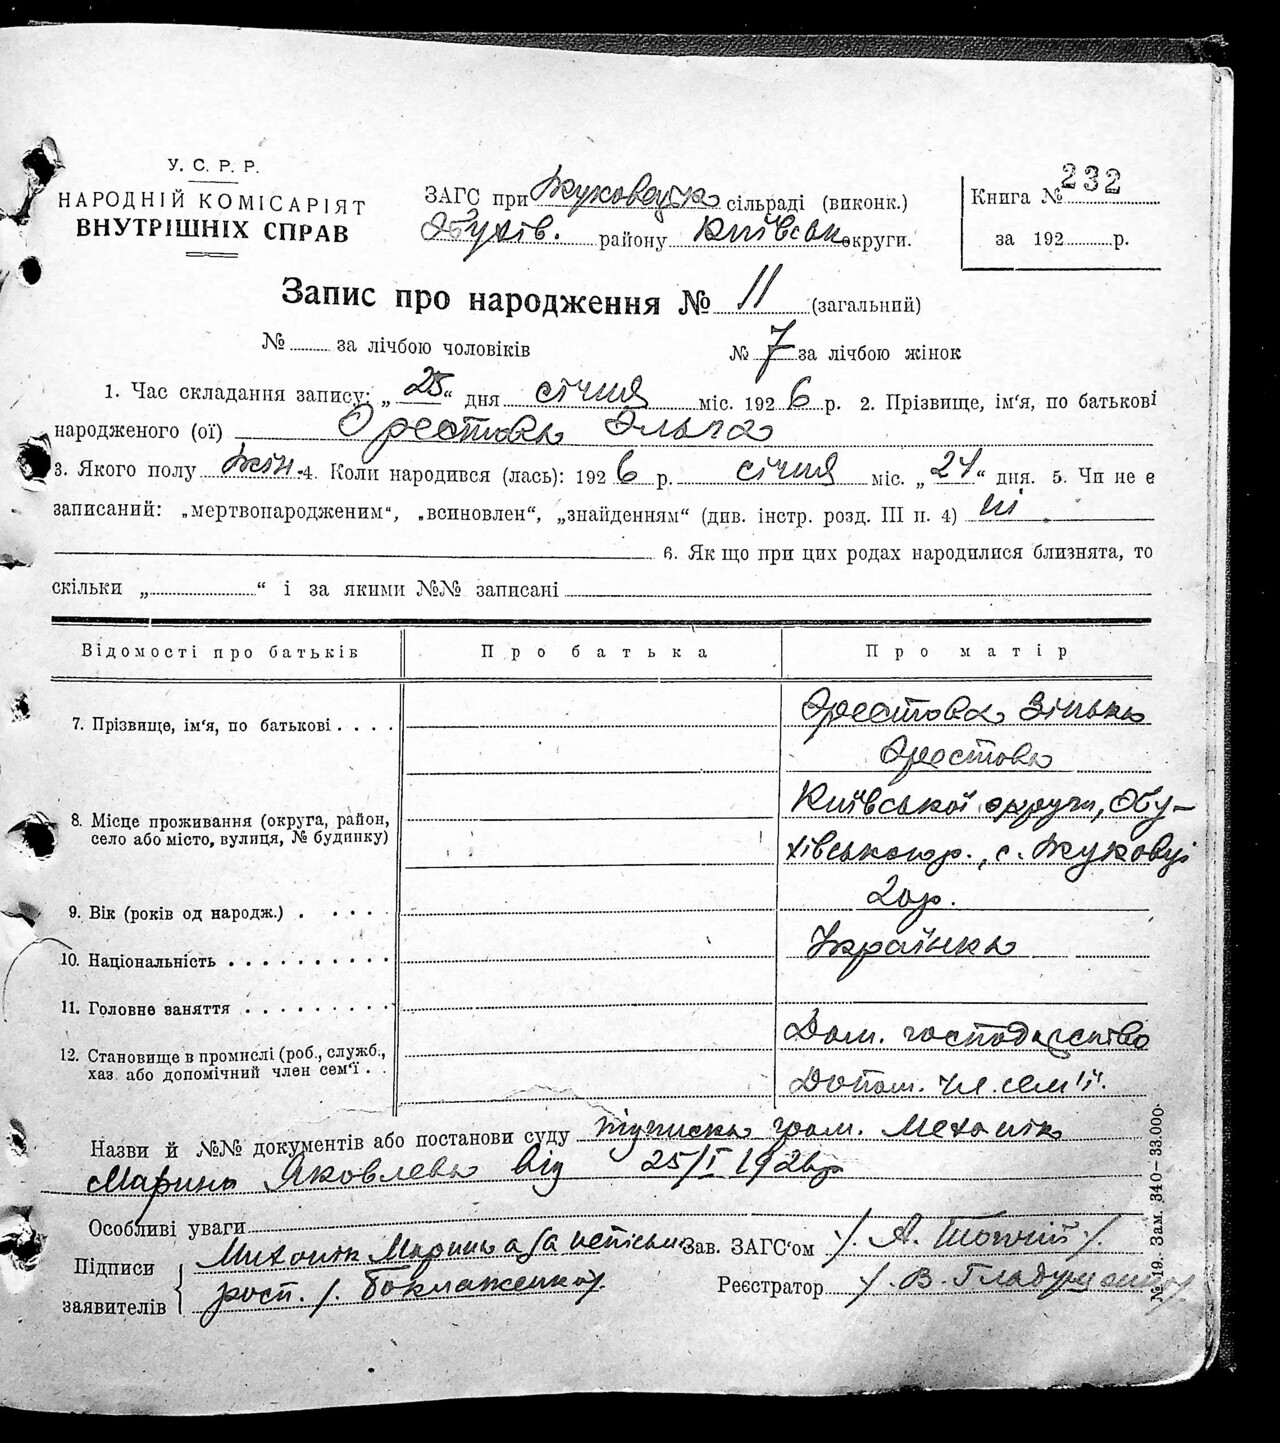 У. С. Р. Р.
НАРОДНІЙ КОМІСАРІЯТ
ВНУТРІШНІХ СПРАВ
ЗАГС при Жуковецьк сільраді (виконк.)
Обухів. району Київськ округи.
Книга № 232
за 192 р.
Запис про народження № 11 (загальний)
№ за лічбою чоловіків № 7 за лічбою жінок
1. Час складання запису: „25“ дня січня міс. 1926 р. 2. Прізвище, ім'я, по батькові
народженого (ої) Орестова Ольга
3. Якого полу жін. 4. Коли народився (лась): 1926 р. січня міс. „24“ дня. 5. Чи не є
записаний: „мертвонародженим“, „всиновлен“, „знайденням“ (див. інстр. розд. III п. 4) ні
6. Як що при цих родах народилися близнята, то
скільки „ “ і за якими №№ записані
Відомості про батьків Про батька Про матір
7. Прізвище, ім'я, по батькові . . . . Орестова Зінька
Орестова
8. Місце проживання (округа, район, село або місто, вулиця, № будинку) Київської округи, Обу-
хівського р., с. Жуковці
9. Вік (років од народж.) . . . . . 20 р.
10. Національність . . . . . . . . . . Українка
11. Головне заняття . . . . . . . . .
12. Становище в промислі (роб., служб., хаз. або допомічний член сем'ї . . Дом. господарство
Допом. чл. сем'ї.
Назви й №№ документів або постанови суду гром.
Марини Яковлева від 25/I 1926 р
Особливі уваги
Підписи заявителів Марина а за неписьм
розп. /. Боклаженко/.
Зав. ЗАГС'ом /. А. /.
Реєстратор /. В. /.
№ 19. Зам. 340—33.000.